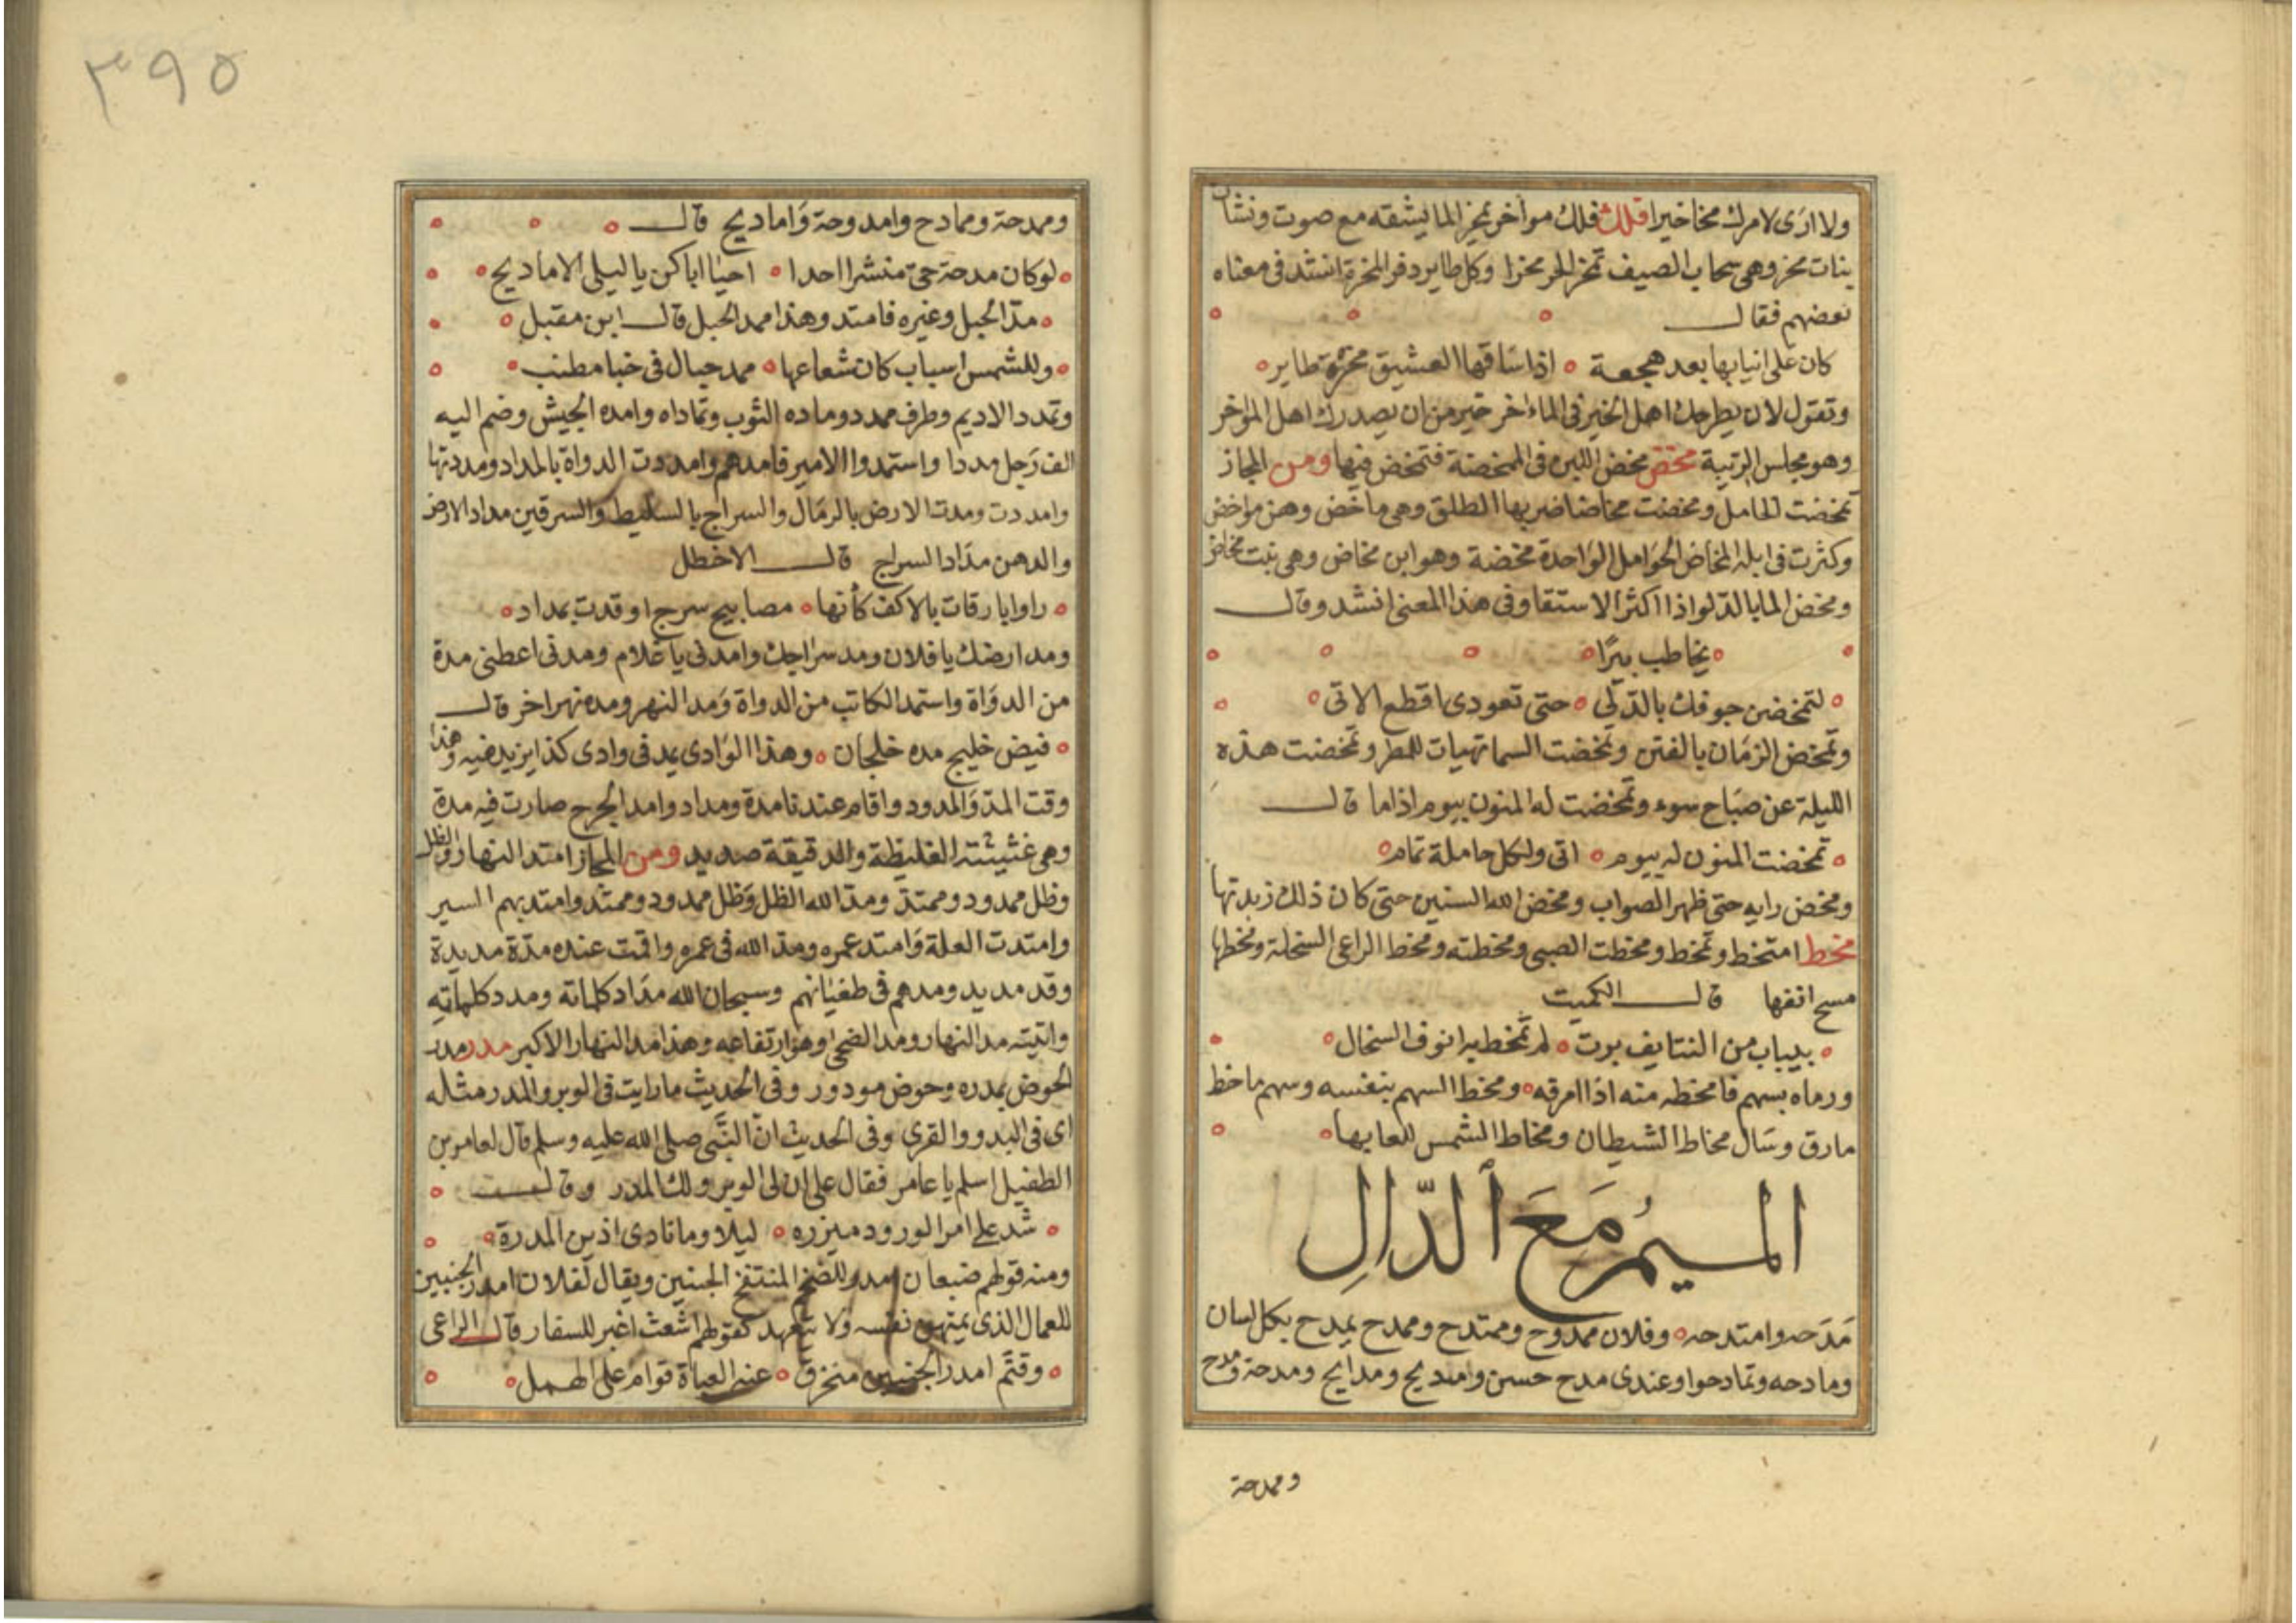 ولا ارى لامرك مخا خيرا فلك فلك مواخر تمخر الما يشقه مع صوت ونشات
بنات مخر وهي سحاب الصيف تمخر الحر مخرا وكل طاير دفر المخرة انشد في معناه
بعضهم فقال
كان على انيابها بعد هجعة ه اذا سافها العشيق مخرة طاير ه
وتقول لان يطرحك اهل الخير في الماء اخر خير من ان يصدرك اهل المواخر
وهو مجلس الريبة مخض مخض اللبن في الممخضة فتمخض فيها ومن المجاز
تمخضت الحامل ومخضت مخاضا ضربها الطلق وهي ماخض وهن مواخض
وكثرت في ابله المخاض الحوامل الواحدة مخضة وهو ابن مخاض وهي بنت مخاض
ومخض الما بالدلو اذا اكثر الاستقا وفي هذا المعنى انشد وقال
ه يخاطب بيرا ه
ه لتمخضن جوفك بالدلي ه حتى تعودي اقطع الاتي ه
وتمخض الزمان بالفتن وتمخضت السما تهيات للمطر وتمخضت هذه
الليلة عن صباح سوء وتمخضت له المنون بيوم اذا ما قال
ه تمخضت المنون له بيوم ه اتى ولكل حاملة تمام ه
ومخض رايه حتى ظهر الصواب ومخض الله السنين حتى كان ذلك زبدتها
مخط امتخط وتمخط ومخطت الصبي ومخطته ومخط الراعي السخلة ومخطها
مسح انفها قال الكميت
ه بيباب من التنايف برت ه لم تمخط به انوف السخال ه
ورماه بسهم فامخطه منه اذا امرقه ه ومخط السهم بنفسه وسهم ماخط
مارق وسال مخاط الشيطان ومخاط الشمس للعابها ه
الميمُ مَعَ الدّالِ
مَدَحه وامتدحه ه وفلان ممدوح وممتدح وممدح يمدح بكل لسان
ومادحه وتمادحوا وعندي مدح حسن وامتديح ومدايح ومدحة ومدح
وممدحة
٣٩٥
وممدحة وممادح وامدوحة وَاماديح قال
ه لو كان مدحة حي منشرا احدا ه احيا اباكن يا ليلى الاماديح ه
ه مدّ الحبل وغيره فامتد وهذا ممد الحبل قال ابن مقبل ه
ه وللشمس اسباب كان شعاعها ه ممد حبال في خبا مطنب ه
وتمدد الاديم وطرف ممدد وماده الثوب وتماداه وامده الجيش وضم اليه
الف رَجل مددا واستمدوا الامير فامدهم وامددت الدواة بالمداد ومددتها
وامددت ومدت الارض بالرمال والسراج بالسليط والسرقين مداد الارض
والدهن مدَاد السراج قال الاخطل
ه راوا بارقات بالاكف كأنها ه مصابيح سرج اوقدت بمداد ه
ومد ارضك يا فلان ومد سراجك وامدني يا غلام ومدني اعطني مدة
من الدوَاة واستمد الكاتب من الدواة وَمد النهر ومده نهر اخر قال
ه فيض خليج مده خلجان ه وهذا الوَادي يمد في وادي كذا يزيد فيه وهذا
وقت المدّ وَالمدود واقام عندنا مدة ومداد وامد الجرح صارت فيه مدة
وهي غثيثته الغليظة والدقيقة صديد ومن المجاز امتد النهار والظل
وظل ممدود وممتد ومدّ الله الظل وَظل ممدود وممتد وامتد بهم السير
وامتدت العلة وَامتد عمره ومدّ الله في عمره واقمت عنده مدّة مديدة
وقد مديد ومدهم في طغيانهم وسبحان الله مدَاد كلماته ومدد كلماته
واتيته مد النهار ومد الضحى وهو ارتفاعه وهذا مد النهار الاكبر مدر مدر
الحوض يمدره وحوض مودور وفي الحديث ما رايت في الوبر والمدر مثله
اي في البدو والقرى وفي الحديث انّ النبّي صلى الله عليه وسلم قال لعامر بن
الطفيل اسلم يا عامر فقال على ان لي الوبر ولك المدر وقال
ه شد على امر الورود ميزره ه ليلا وما نادى اذين المدرة ه
ومنه قولهم ضبعان امدر للضخم المنتفخ الجبنين ويقال لفلان امدر الجنبين
للعمال الذي يمتهن نفسه ولا يتعهد كقولهم اشعث اغبر للسفار قال الراعي
ه وقيَّم امدر الجنبين منخرق ه عنه العباة قوام على الهمل ه